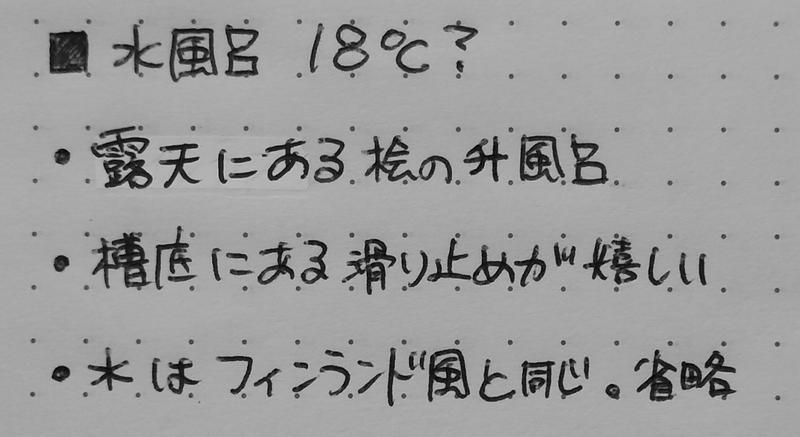 ■ 水風呂 18℃?
・露天にある桧の升風呂
・槽底にある滑り止めが嬉しい
・水はフィンランド風と同じ。省略